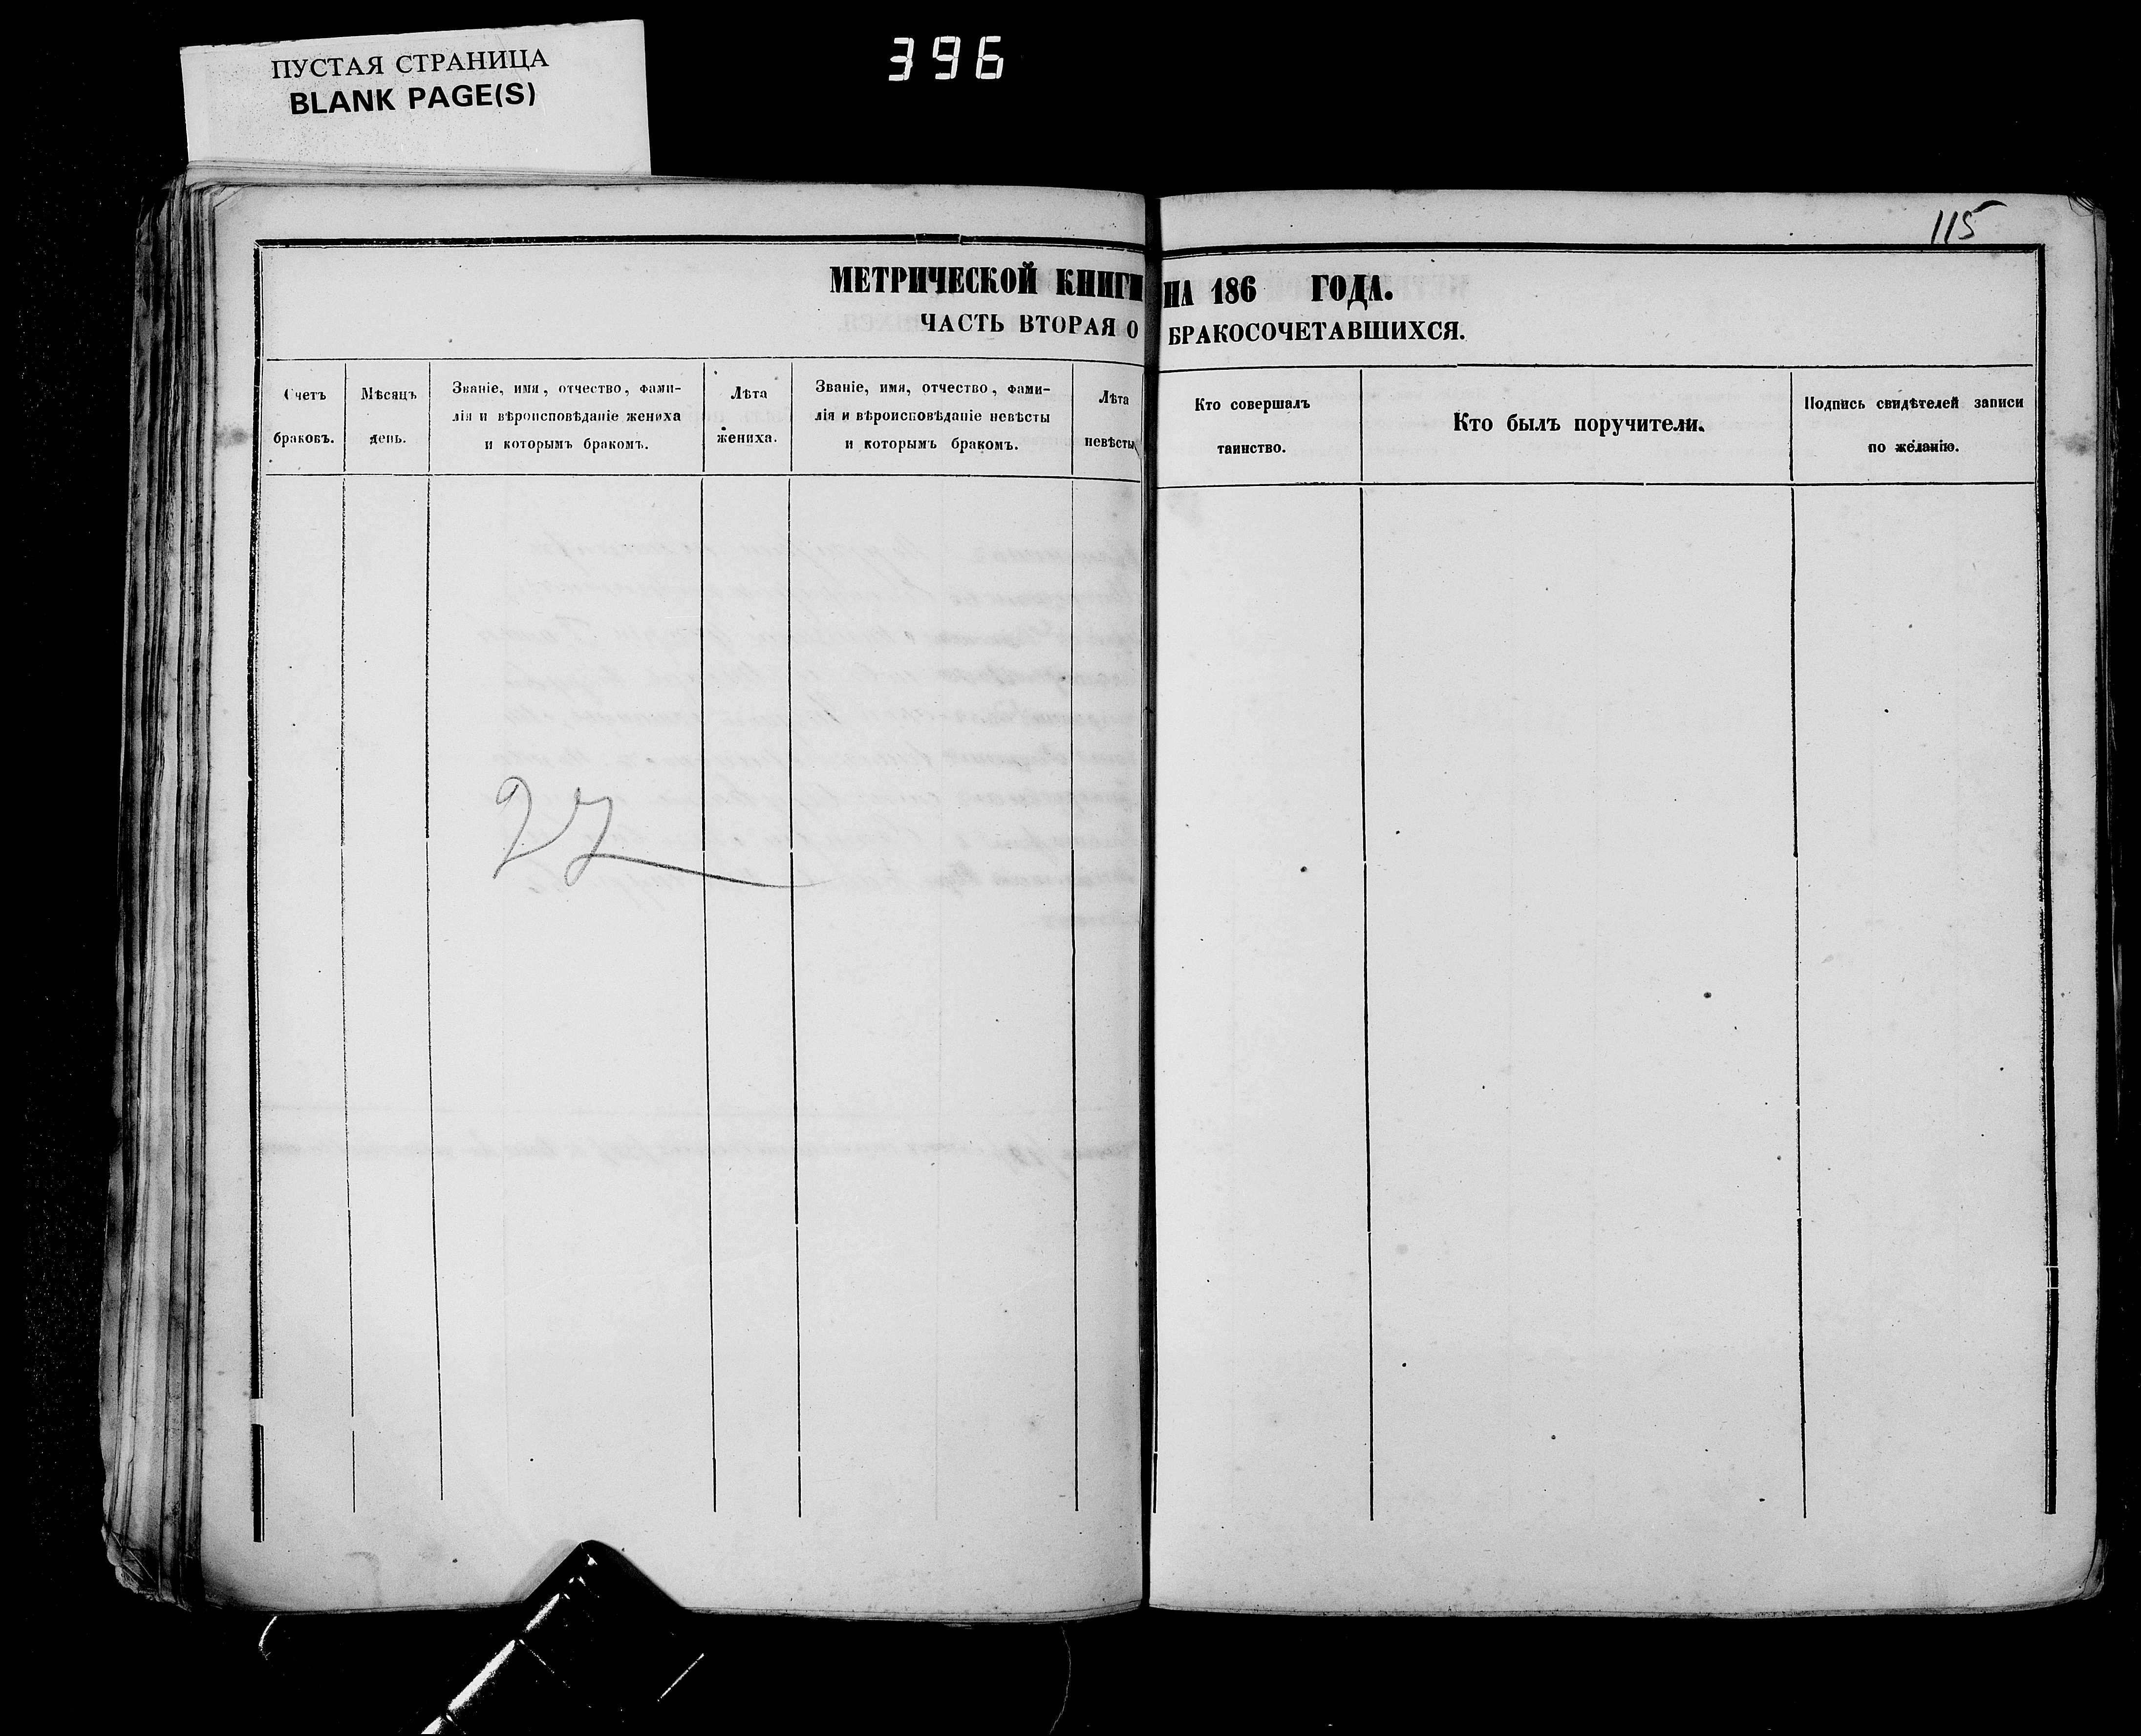 ПУСТАЯ СТРАНИЦА
BLANK PAGE(S)
396
115
МЕТРИЧЕСКОЙ КНИГИ НА 186 ГОДА.
ЧАСТЬ ВТОРАЯ О БРАКОСОЧЕТАВШИХСЯ.
Счетъ
браковъ.
Мѣсяцъ
день.
Званіе, имя, отчество, фами-
лія и вѣроисповѣданіе жениха
и которымъ бракомъ.
Лѣта
жениха.
Званіе, имя, отчество, фами-
лія и вѣроисповѣданіе невѣсты
и которымъ бракомъ.
Лѣта
невѣсты
Кто совершалъ
таинство.
Кто былъ поручители.
Подпись свидѣтелей записи
по желанію.